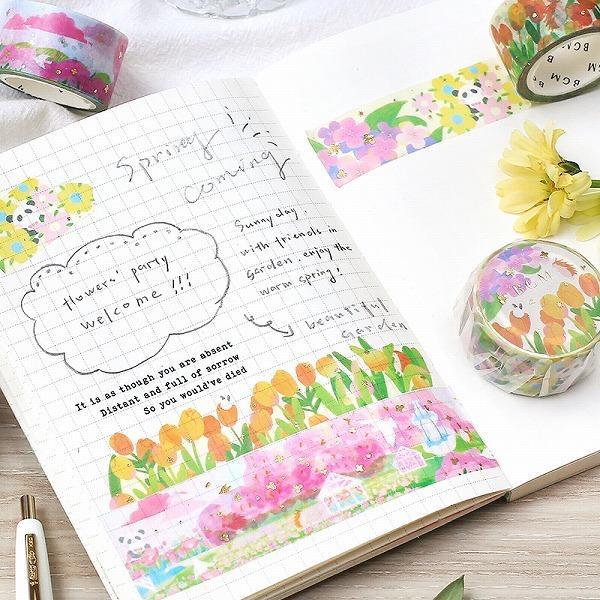 Spring
coming
Sunnyday.
with friends in
garden. enjoy the
warm spring!
beautiful
garden
flowers' party
welcome !!!
It is as though you are absent
Distant and full of sorrow
So you would've died
BGM